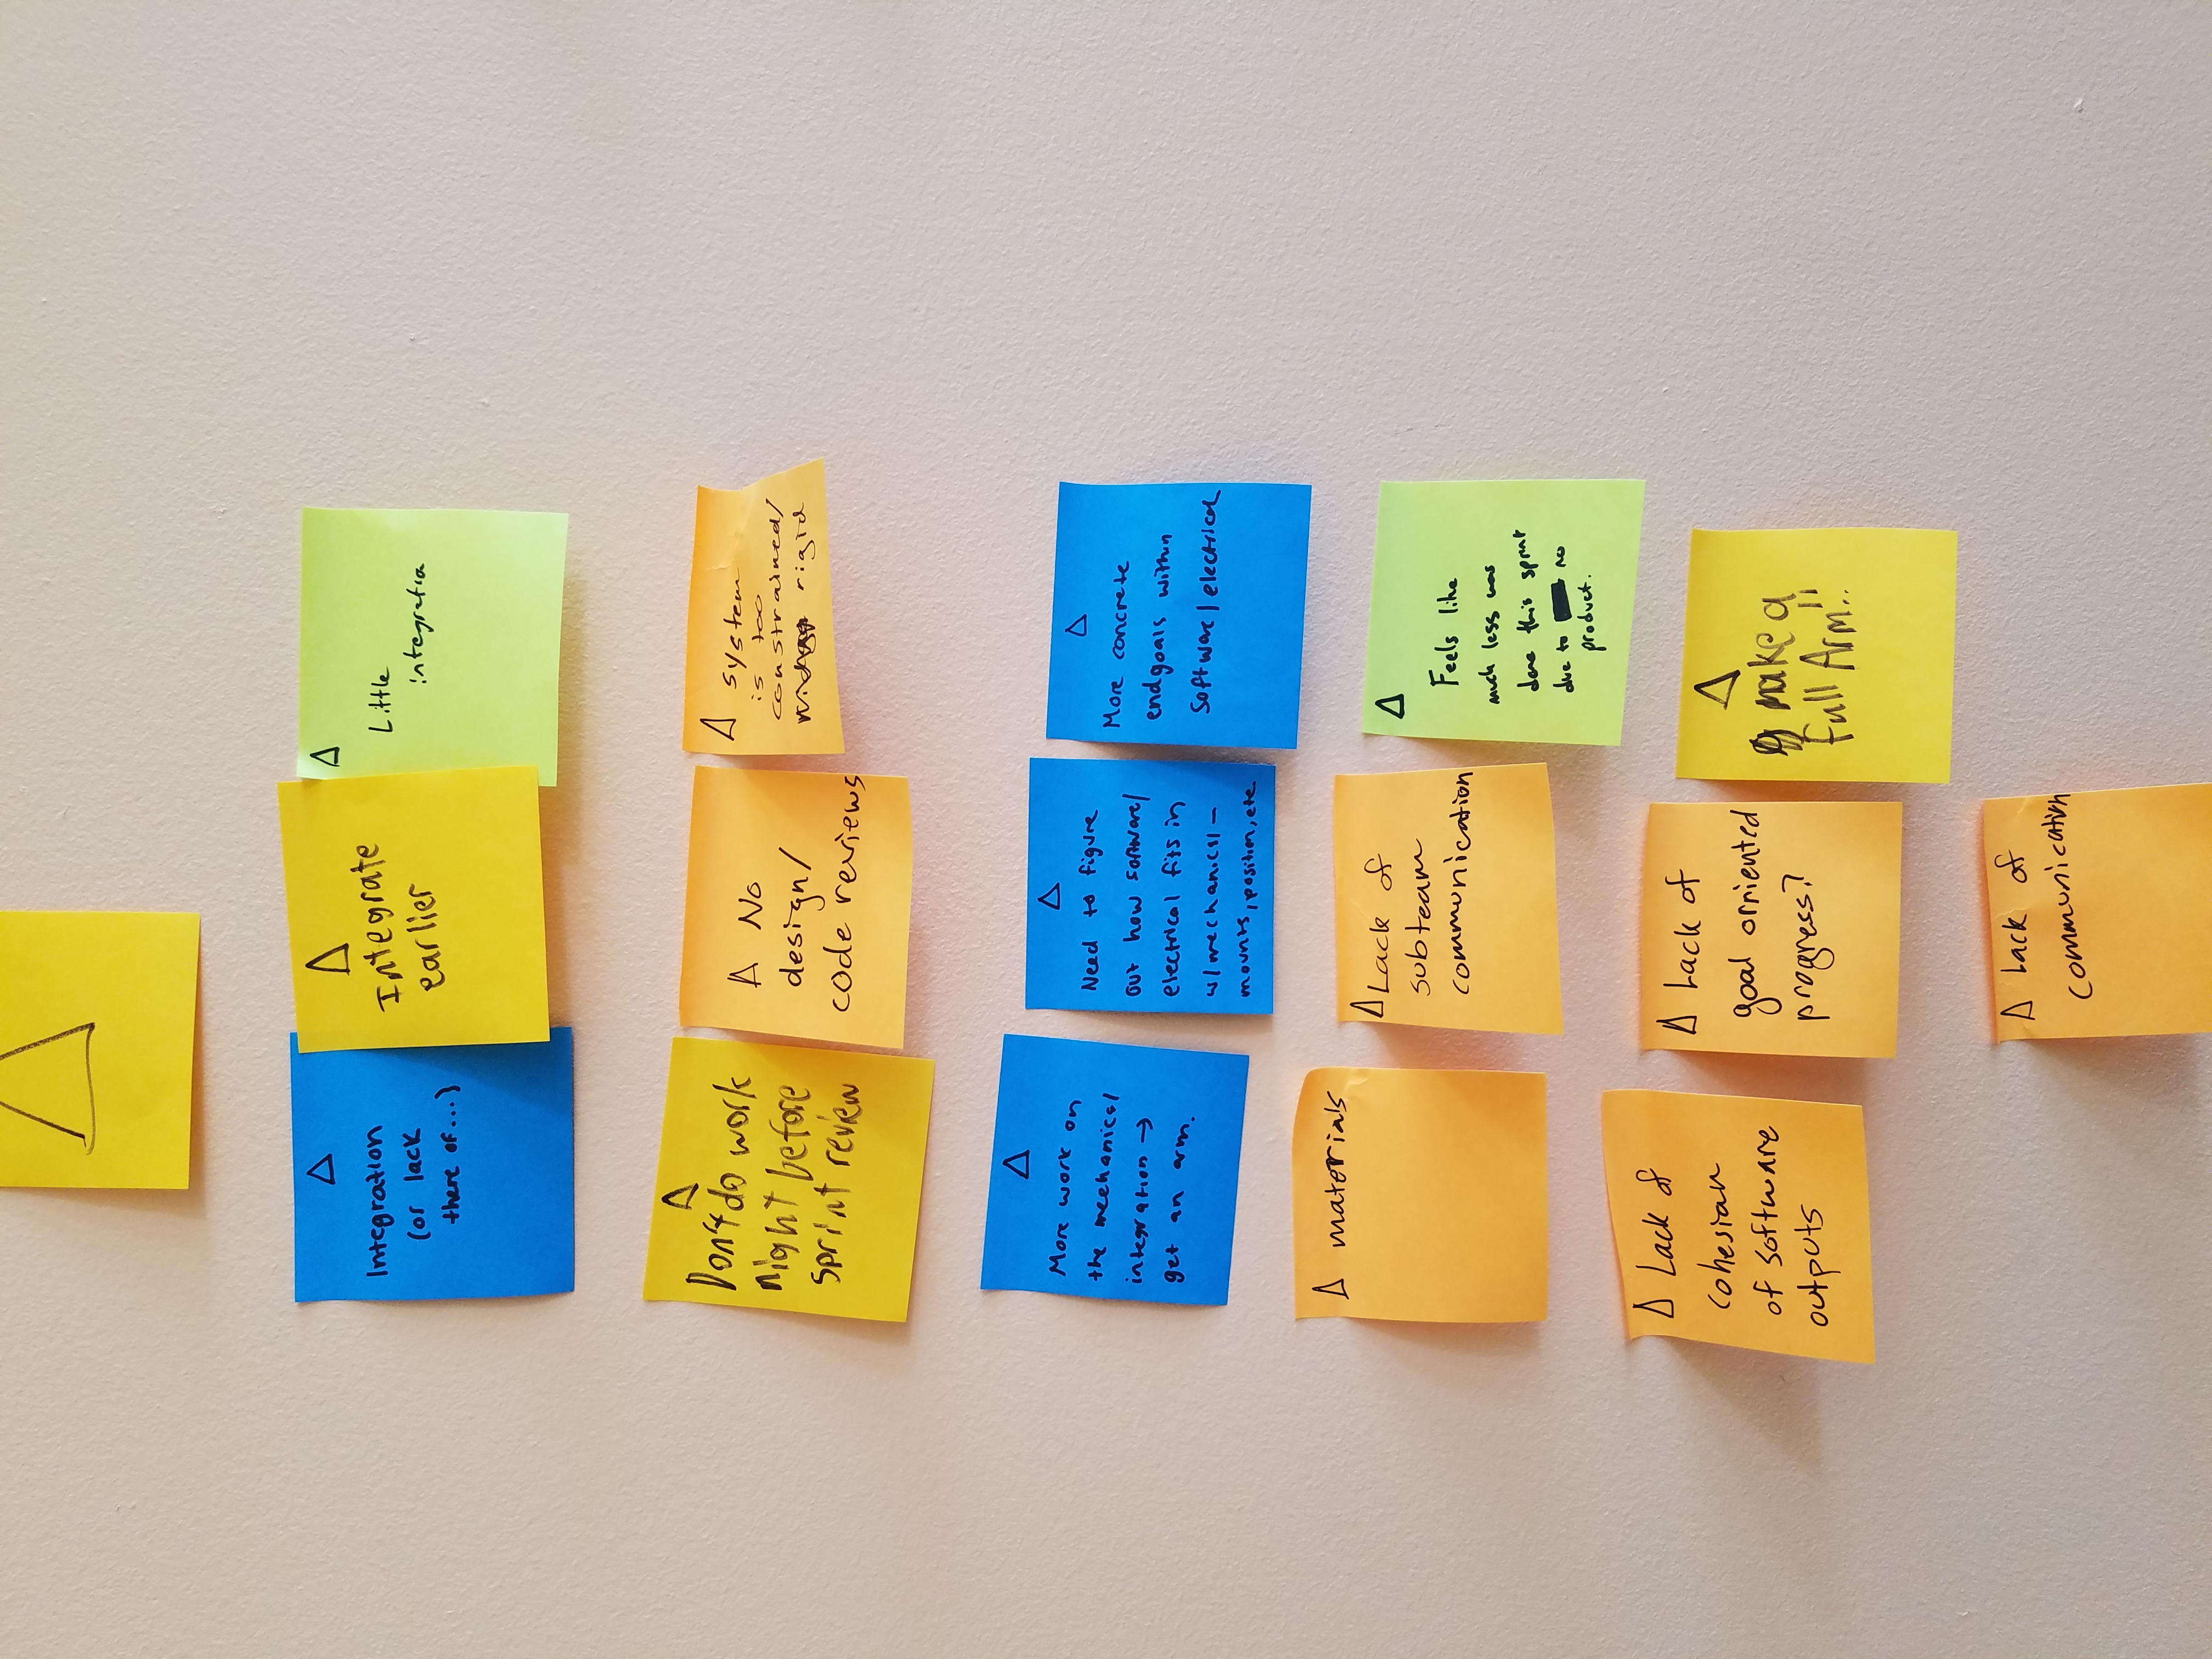 Δ
Δ
Integration
(or lack
there of...)
Δ
Integrate
earlier
Δ
Little
integratio
Δ
Don't do work
night before
sprint review
Δ No
design/
code reviews
Δ system
is too
constrained/
rigid
Δ
More work on
the mechanical
integration →
get an arm.
Δ
Need to figure
out how software/
electrical fits in
w/mechanical –
mounts, position, etc
Δ
More concrete
endgoals within
Software/electrical
Δ materials
Δ Lack of
subteam
communication
Δ
Feels like
much less was
done this sprint
due to no
product.
Δ Lack of
cohesian
of software
outputs
Δ Lack of
goal orriented
progress?
Δ
make a
full Arm!!
Δ Lack of
communication